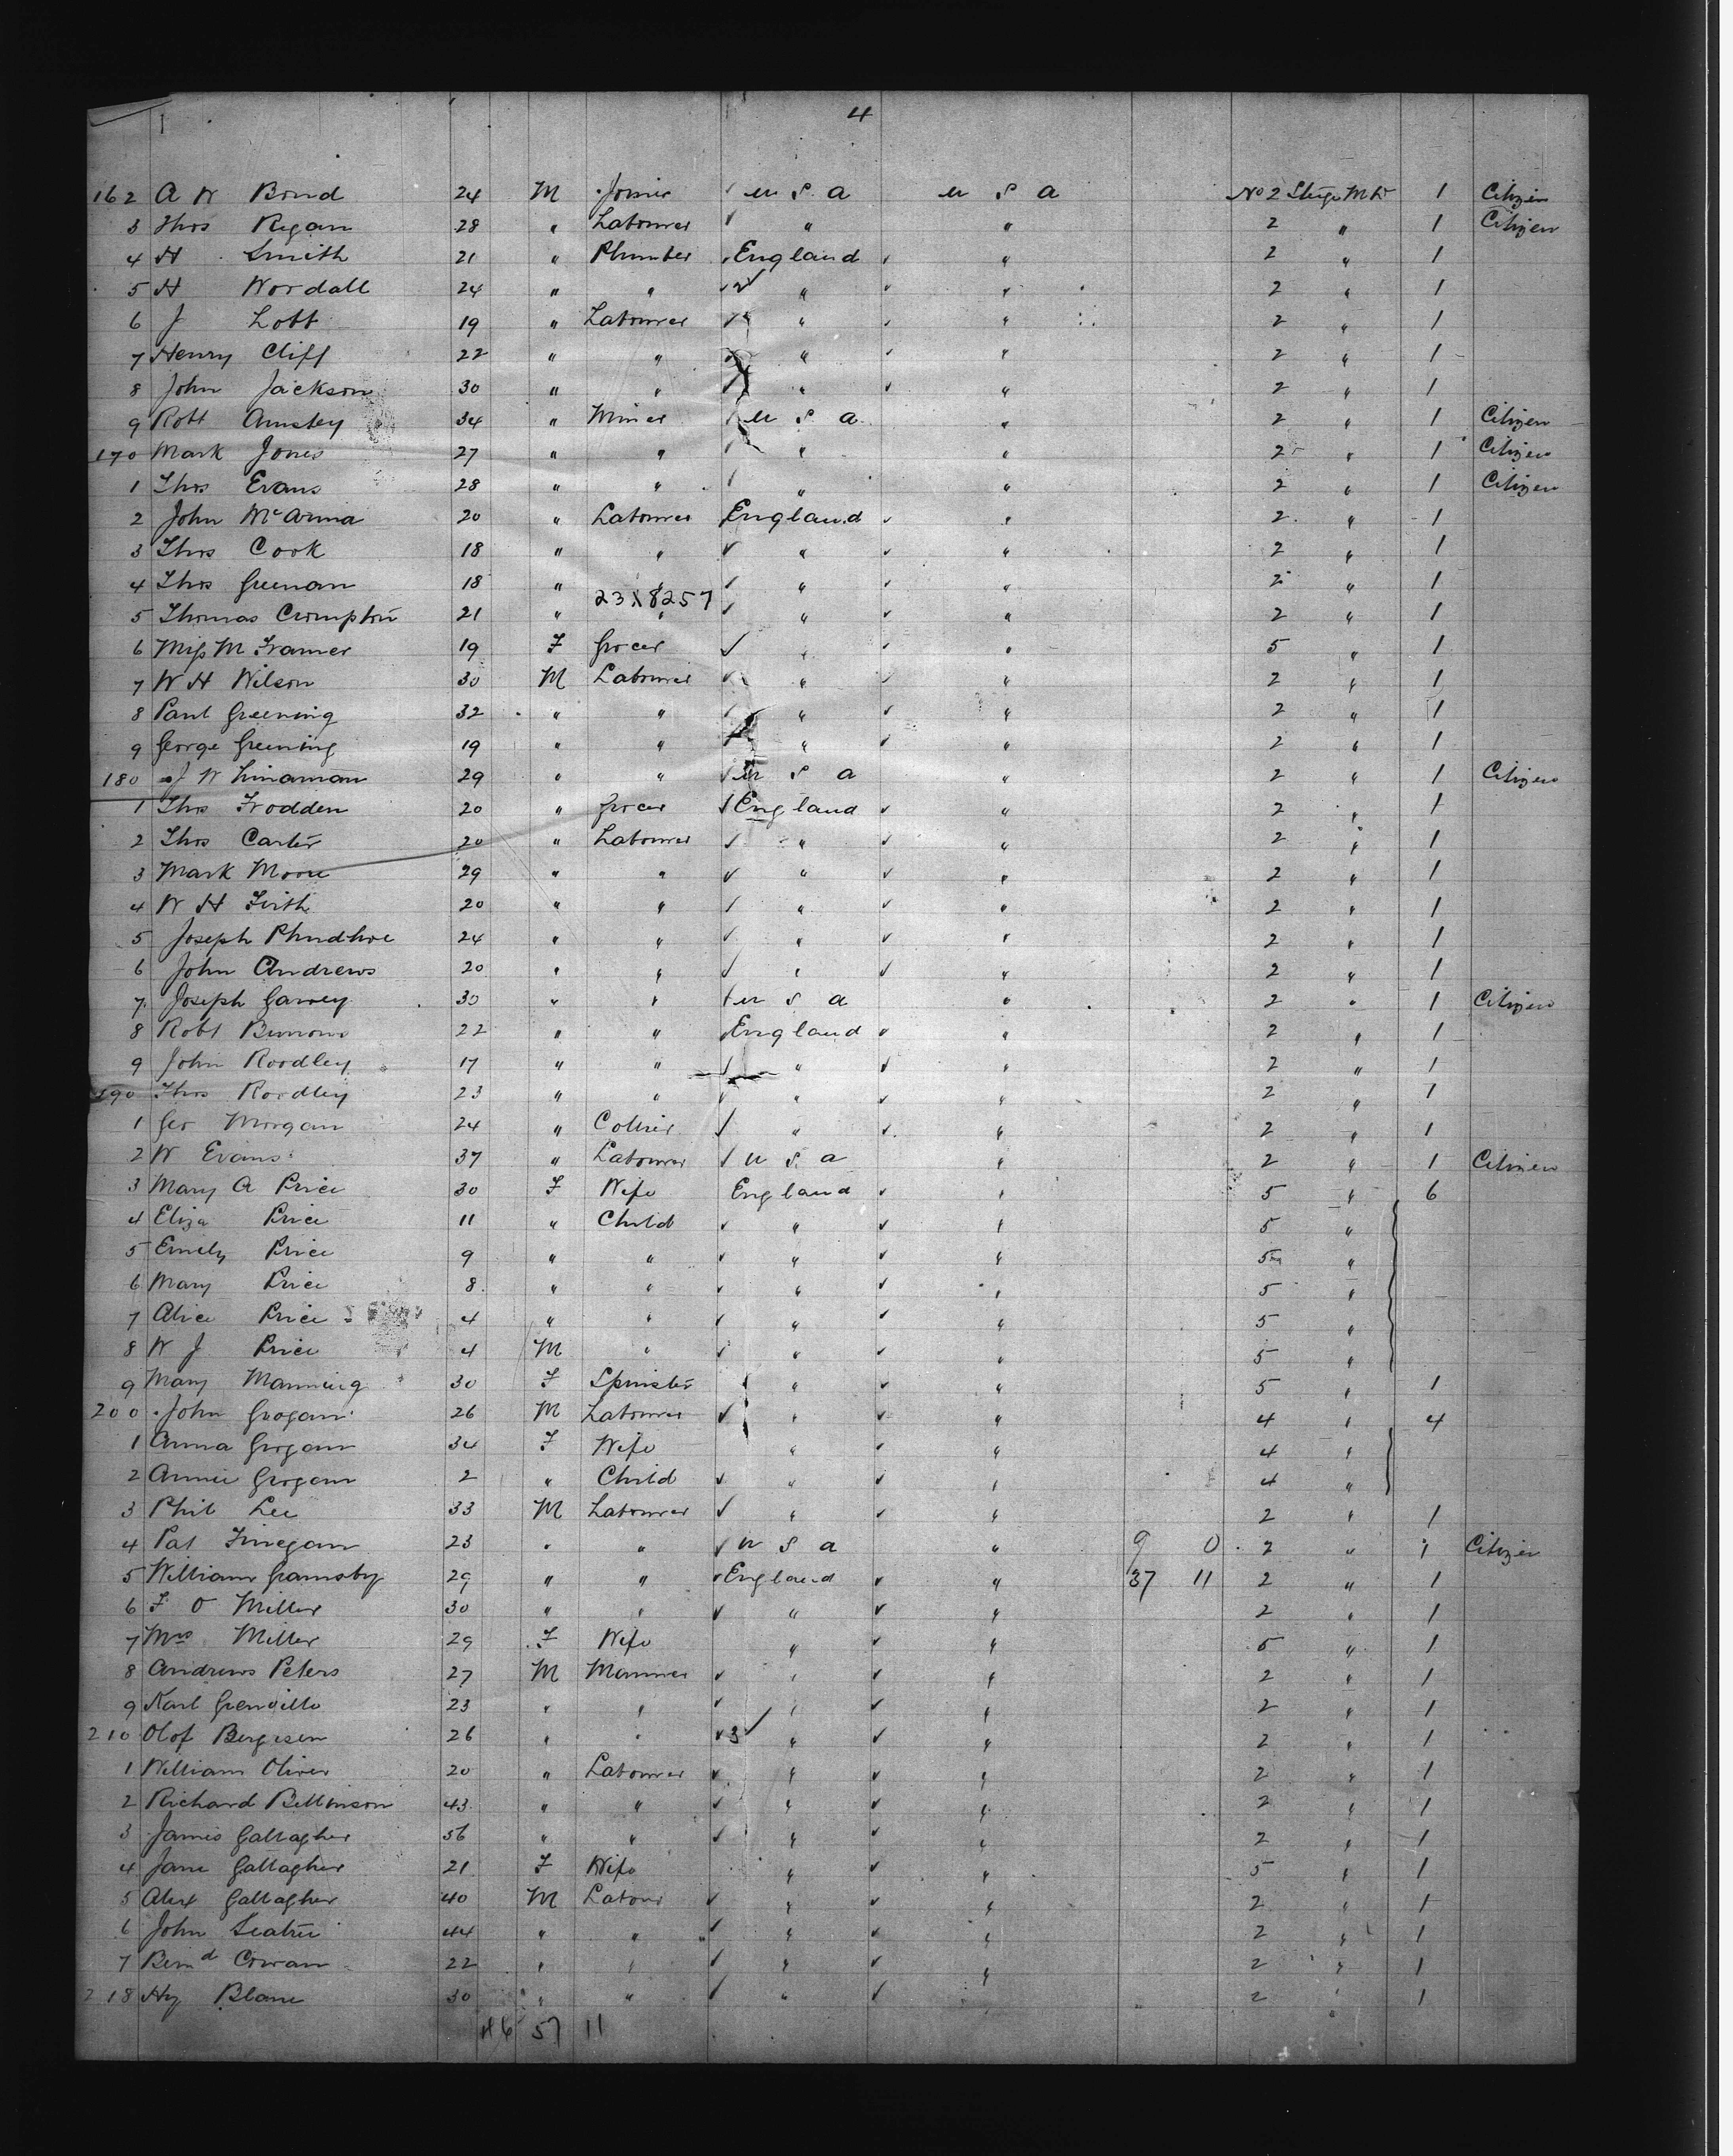 4
162 A W Bond 24 M Joiner U S A U S A No 2 Steige Mid 1 Citizen
3 Thos Regan 28 " Labourer " " 2 " 1 Citizen
4 H Smith 21 " Plumber England " 2 " 1
5 H Wordall 24 " " 2 " " 2 " 1
6 J Lott 19 " Labourer " " 2 " 1
7 Henry Cliff 22 " " " " 2 " 1
8 John Jackson 30 " " " " 2 " 1
9 Robt Amstey 34 " Miner U S A " 2 " 1 Citizen
170 Mark Jones 27 " " " " 2 " 1 Citizen
1 Thos Evans 28 " " " " 2 " 1 Citizen
2 John McAnna 20 " Labourer England " 2 " 1
3 Thos Cook 18 " " " " 2 " 1
4 Thos Greenan 18 " " " " 2 " 1
23X8257
5 Thomas Crompton 21 " " " " 2 " 1
6 Miss M Framer 19 F Grocer " " 5 " 1
7 W H Wilson 30 M Labourer " " 2 " 1
8 Paul Greening 32 " " " " 2 " 1
9 George Greening 19 " " " " 2 " 1
180 J W Linaman 29 " " U S A " 2 " 1 Citizen
1 Thos Frodden 20 " Grocer England " 2 " 1
2 Thos Carter 20 " Labourer " " 2 " 1
3 Mark Moore 29 " " " " 2 " 1
4 W H Firth 20 " " " " 2 " 1
5 Joseph Phudhoe 24 " " " " 2 " 1
6 John Andrews 20 " " " " 2 " 1
7 Joseph Garvey 30 " " U S A " 2 " 1 Citizen
8 Robt Burrows 22 " " England " 2 " 1
9 John Roodley 17 " " " " 2 " 1
190 Thos Roodley 23 " " " " 2 " 1
1 Geo Morgan 24 " Collier " " 2 " 1
2 W Evans 37 " Labourer U S A " 2 " 1 Citizen
3 Mary A Price 30 F Wife England " 5 " 6
4 Eliza Price 11 " Child " " 5 "
5 Emily Price 9 " " " " 5 "
6 Mary Price 8 " " " " 5 "
7 Alice Price 4 " " " " 5 "
8 W J Price 4 M " " " 5 "
9 Mary Manning 30 F Spinster " " 5 " 1
200 John Grogan 26 M Labourer " " 4 " 4
1 Anna Grogan 34 F Wife " " 4 "
2 Annie Grogan 2 " Child " " 4 "
3 Phil Lee 33 M Labourer " " 2 " 1
4 Pat Finegan 23 " " U S A " 9 0 2 " 1 Citizen
5 William Gramsby 29 " " England " 37 11 2 " 1
6 F O Miller 30 " " " " 2 " 1
7 Mrs Miller 29 F Wife " " 5 " 1
8 Andrews Peters 27 M Manner " " 2 " 1
9 Karl Grenville 23 " " " " 2 " 1
210 Olof Bergesen 26 " " 3 " " 2 " 1
1 William Oliver 20 " Labourer " " 2 " 1
2 Richard Billinson 43 " " " " 2 " 1
3 James Gallagher 56 " " " " 2 " 1
4 Jane Gallagher 21 F Wife " " 5 " 1
5 Alex Gallagher 40 M Labour " " 2 " 1
6 John 44 " " " " 2 " 1
7 Bernd Cowan 22 " " " " 2 " 1
218 Hy Blane 30 " " " 2 " 1
46 57 11